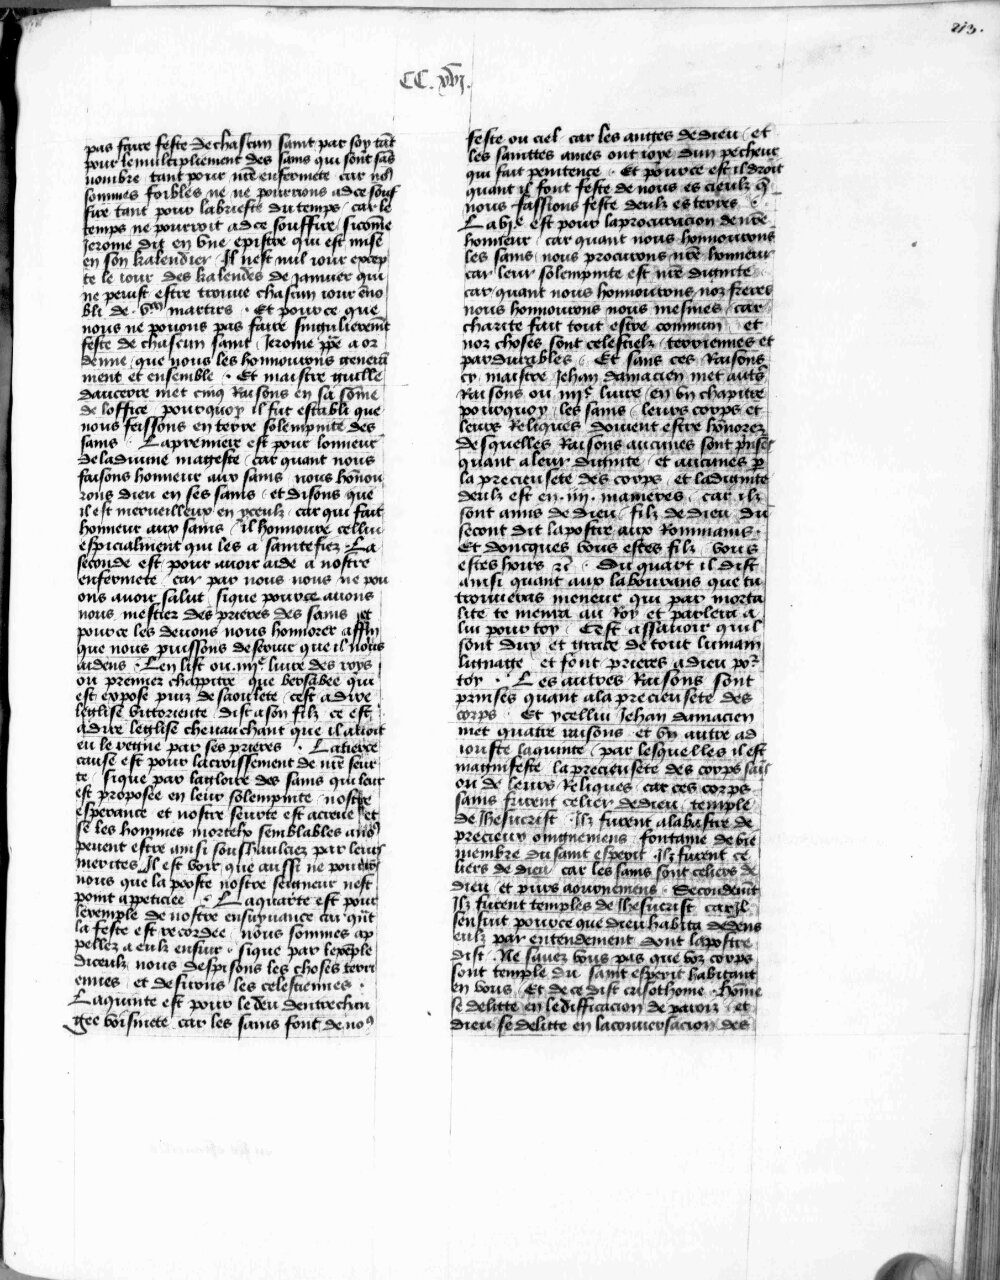 213.
CC. xvj.
pas faire feste de chascun saint par soy tāt
pour le multipliement des sains qui sont sās
nombre tant pour nr̄e enfermete car no9
sommes foibles ne ne pourrions a dce souf
frir tant pour la briefte du temps car le
temps ne pourroit a dce souffire sicōme
Jerome dit en vne epistre qui est mise
en son kalendier Il nest nul iour excep
te le iour des kalendes de januier qui
ne peust estre trouue chascun iour ēno
bli de .vm. martirs . Et pource que
nous ne pouons pas faire singulieremēt
feste de chascun saint Jerome pp̄e a or
denne que nous les honnourons genera
ment et ensemble . Et maistre guille
daucerre met cinq Raisons en sa sōme
de loffice pourquoy il fut establi que
nous feissons en terre solempnite des
sains . La premiere est pour lonneur
de la diuine mageste car quant nous
faisons honneur aux sains nous hōnou
rons dieu en ses sains et disons que
il est merueilleux en yceulx car qui fait
honneur aux sains il honnoure cellui
espicialment qui les a saintefiez . La
seconde est pour auoir aide a nostre
enfermete car par nous nous ne pou
ons auoir salut sique pource auons
nous mestier des prieres des sains et
pource les deuons nous honnorer affin
que nous puissons deseruir que il nous
aidens . Len list ou .iiije. liure des roys
ou premier chappitre que bersabee qui
est expose puiz de saoulete cest a dire
leglise vittoriente dist a son filz ce est
a dire leglise cheuauchant que il auoit
eu le regne par ses prieres . La tierce
cause est pour lacroissement de nr̄e seur
te sique par la gloire des sains qui leur
est proposee en leur solempnite nostre
esperance et nostre seurte est acreue et
se les hommes mortelx semblables a nos
peuent estre ainsi soushauciez par leurs
merites Il est voir que aussi ne pouons
nous que la poste nostre seigneur nest
point appeticiee . La quarte est pour
lexemple de nostre ensuyuance car qn̄t
la feste est recordee nous sommes ap
pellez a eulx ensuir . sique par lexēple
diceulx nous despisons les choses terri
ennes et desirons les celestiennes .
La quinte est pour le deu dentrechan
gee voisinete car les sains font de no9
feste ou ciel car les anges de dieu et
les sainttes ames ont ioye dun pecheur
qui fait penitence . Et pource est il droit
quant il font feste de nous es cieulx q̄
nous fassions feste deulx es terres .
La vje est pour la procuracion de nr̄e
honneur car quant nous honnourons
les sains nous procurons nr̄e honneur
car leur solempnite est nr̄e dignite
car quant nous honnourons noz freres
nous honnourons nous mesmes car
charite fait tout estre commun et
noz choses sont celestielz terriennes et
pardurables . Et sans ces Raisons
cy maistre Jehan damacien met aut̄s
Raisons ou iiije liure en vn chapitre
pourquoy les sains leurs corps et
leurs Reliques doiuent estre hōnorez
desquelles Raisons aucunes sont pr̄ises
quant a leur dignite et aucunes p̄
la precieusete des corps et la dignite
deulx est en .iiij. manieres car ilz
sont amis de dieu filz de dieu du
second dit lapostre aux Rommains .
Et doncques vous estes filz vous
estes hoirs &c . Du quart il dist
ainsi quant aux labourans que tu
trouueras meneur qui par morta
lite te menra au Roy et parlera a
lui pour toy Cest assauoir quil
sont duy et grace de tout lumain
lignage et font prieres a dieu po2
toy . Les autres Raisons sont
prinses quant a la precieusete des
corps . Et ycellui Jehan damacien
met quatre raisons et vn autre ad
iouste la quinte par lesquelles il est
magnifeste la precieusete des corps sais
ou de leurs Reliques car ces corps
sains furent celier de dieu temple
de Jhesucrist . Ilz furent alabastre de
precieux oingnemens fontaine de vie
membre du saint esperit . Ilz furent ce
liers de dieu car les sains sont celiers de
dieu et purs aournemens . Secondemēt
Ilz furent temples de Jhesucrist car Il
sensuit pource que dieu habita dedens
eulz par entendement dont lapostre
dist . Ne sauez vous pas que voz corps
sont temple du saint esperit habitant
en vous . Et de ce dist crisothome . Hōme
se delitte en ledifficacion de paroiz et
dieu se delitte en la conuersacion des